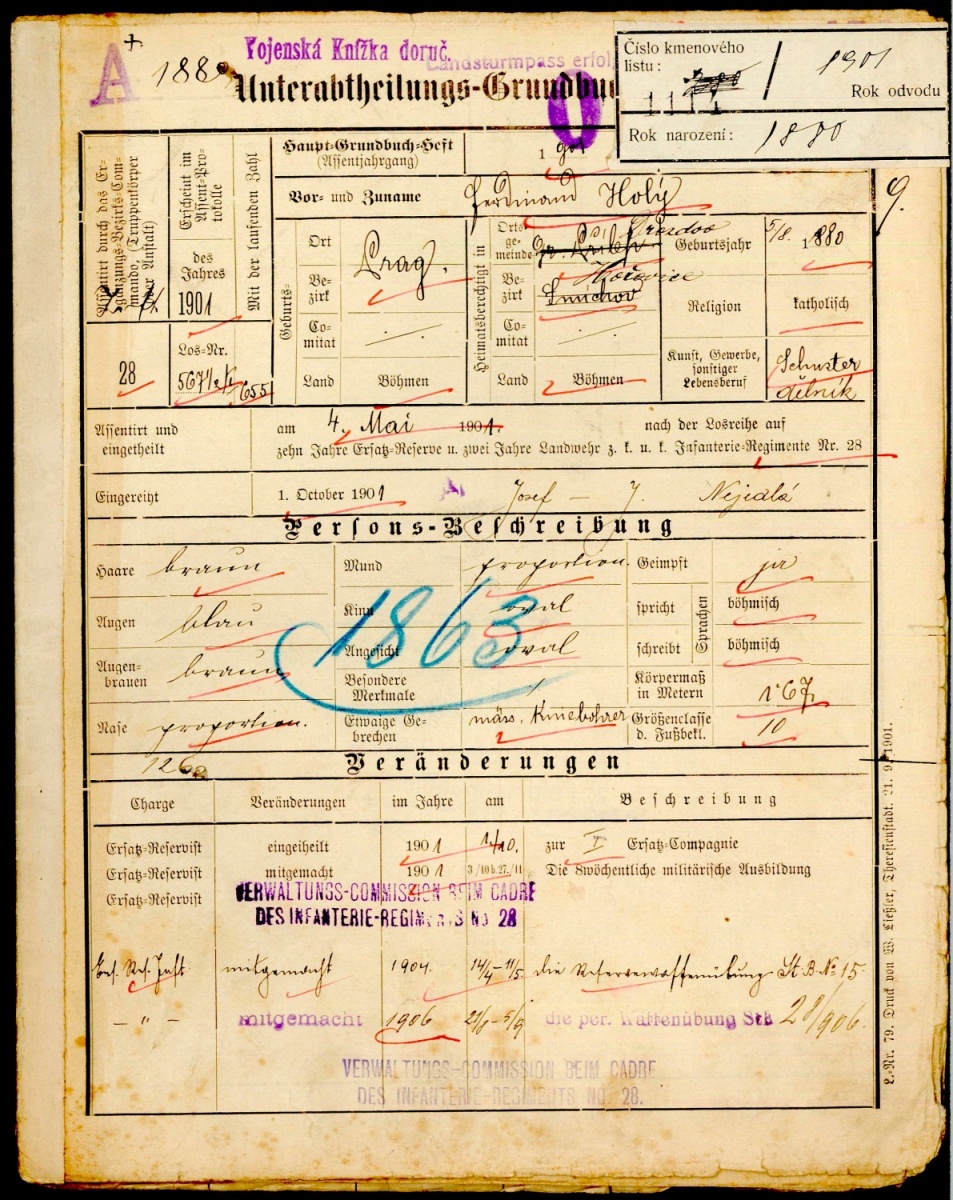 Vojenská Knížka doruč.
Landsturmpass erfol
A
188
Unterabtheilungs-Grundbu
Číslo kmenového
listu:
/ 1901
Rok odvodu
Rok narození: 1880
Assentirt durch das Ergänzungs-Bezirks-Commando, (Truppenkörper oder Anstalt)
28
Erscheint im Assent-Protokolle
des Jahres
1901
Mit der laufenden Zahl
Los-Nr.
655
Haupt-Grundbuch-Heft
(Assentjahrgang)
1901
Vor- und Zuname
Ferdinand Holý
9.
Geburts-
Ort Prag.
Bezirk
Comitat
Land Böhmen
Heimatsberechtigt in
Ortsgemeinde Drozdov
Bezirk Hořovice
Smíchov
Comitat
Land Böhmen
Geburtsjahr 5/8. 1880
Religion katholisch
Kunst, Gewerbe,
sonstiger
Lebensberuf
Schuster
dělník
Assentirt und
eingetheilt
am 4. Mai 1901. nach der Losreihe auf
zehn Jahre Ersatz-Reserve u. zwei Jahre Landwehr z. k. u. k. Infanterie-Regimente Nr. 28
Eingereiht 1. October 1901 Josef — J. Nejedlá
Persons-Beschreibung
Haare braun
Mund proportion.
Geimpft ja
Augen blau
Kinn oval
spricht böhmisch
Sprachen
Augenbrauen braun
Angesicht oval
schreibt böhmisch
Besondere
Merkmale /
Körpermaß
in Metern 1·67
Nase proportion.
Etwaige Gebrechen mäss. Kniebohrer
Größenclasse
d. Fußbekl. 10
1863
126
Veränderungen
Charge Veränderungen im Jahre am Beschreibung
Ersatz-Reservist eingeiheilt 1901 1/10. zur I Ersatz-Compagnie
Ersatz-Reservist mitgemacht 1901 3/10 b. 27./11 Die 8wöchentliche militärische Ausbildung
Ersatz-Reservist
VERWALTUNGS-COMMISSION BEIM CADRE
DES INFANTERIE-REGIMENTS No 28
Ers. Res. Inft mitgemacht 1904. 14/4-11/5. die Reservewaffenübung St. B. No 15
— " — mitgemacht 1906 die per. Waffenübung StB 28/906.
VERWALTUNGS-COMMISSION BEIM CADRE
DES INFANTERIE-REGIMENTS No 28.
L.-Nr. 79. Druck von W. Ließler, Theresienstadt. 21. 9. 1901.